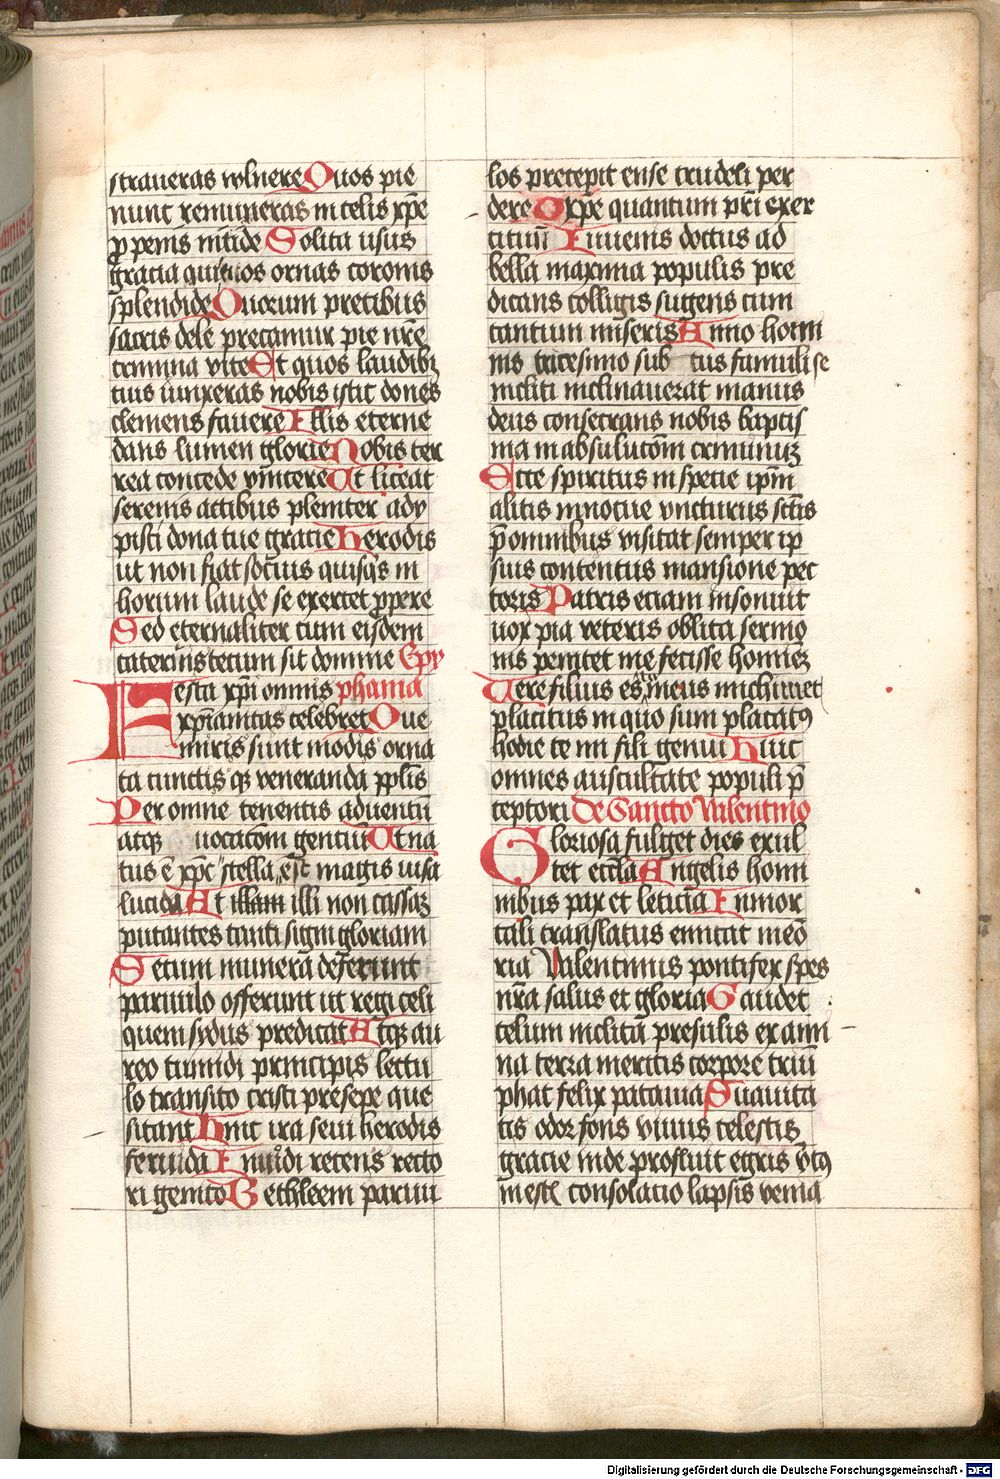 straueras wlnere Quos pie
nunc remuneras in celis xp̄e
ꝓ penis nitide Solita usus
gracia qui uos ornas coronis
splendide Quorum precibus
sacris dele precamur pie nr̄e
crimina vite Et quos laudibꝫ
tuis iunxeras nobis istic dones
clemens fauere Illis eterne
dans lumen glorie Nobis ter
rea concede vincere Ut liceat
serenis actibus pleniter ady
pisci dona tue gracie Herodis
ut non fiat socius quisqs in
horum laude se exercet ꝓpere
Sed eternaliter cum eisdem
caterius tecum sit domine Epy
Festa xp̄i omnis phania
xp̄ianitas celebret Que
miris sunt modis orna
ta cunctis qꝫ veneranda pp̄lis
Per omne tenentis aduentū
atqꝫ uocacōm gentiū Ut na
tus ē xp̄c stella est magis uisa
lucida At illam illi non cassaꝫ
putantes tanti signi gloriam
Secum munera deferunt
paruulo offerunt ut regi celi
quem sydus predicat Atqꝫ au
reo tumidi principis lectu
lo transito cristi presepe que
sitant Hinc ira seui herodis
feruida Inuidi recens recto
ri genito Bethleem paruu
los precepit ense crudeli per
dere O xp̄e quantum pr̄i exer
citum Iuuenis doctus ad
bella maxima populis pre
dicans colligis sugens cum
tantum miseris Anno homi
nis tricesimo sub tus famuli se
incliti inclinauerat manus
deus consecrans nobis baptis
ma in absolucōm criminuꝫ
Ecce spiritus in specie ipm̄
alitis innocue vncturus sctīs
p̄ omnibus visitat semper ip
suis contentus mansione pec
toris Patris eciam insonuit
uox pia veteris oblita sermo
nis penitet me fecisse hominēꝫ
Uere filius es meus michimet
placitus in quo sum placatꝰ
hodie te mi fili genui Huic
omnes auscultate populi p̄
ceptori De Sancto Valentino
Gloriosa fulget dies exul
tet eccl̄a Angelis homi
nibus pax et leticia Inmor
tali translatus enitat meō
ria Valentinus pontifex spes
nr̄a salus et gloria Gaudet
celum inclita presulis exami
na terra meritis corpore triū
phat felix patauia Suauita
tis odor fons viuus celestis
gracie inde profluit egris v̄tꝰ
mestꝭ consolacio lapsis venia
Digitalisierung gefördert durch die Deutsche Forschungsgemeinschaft - DFG